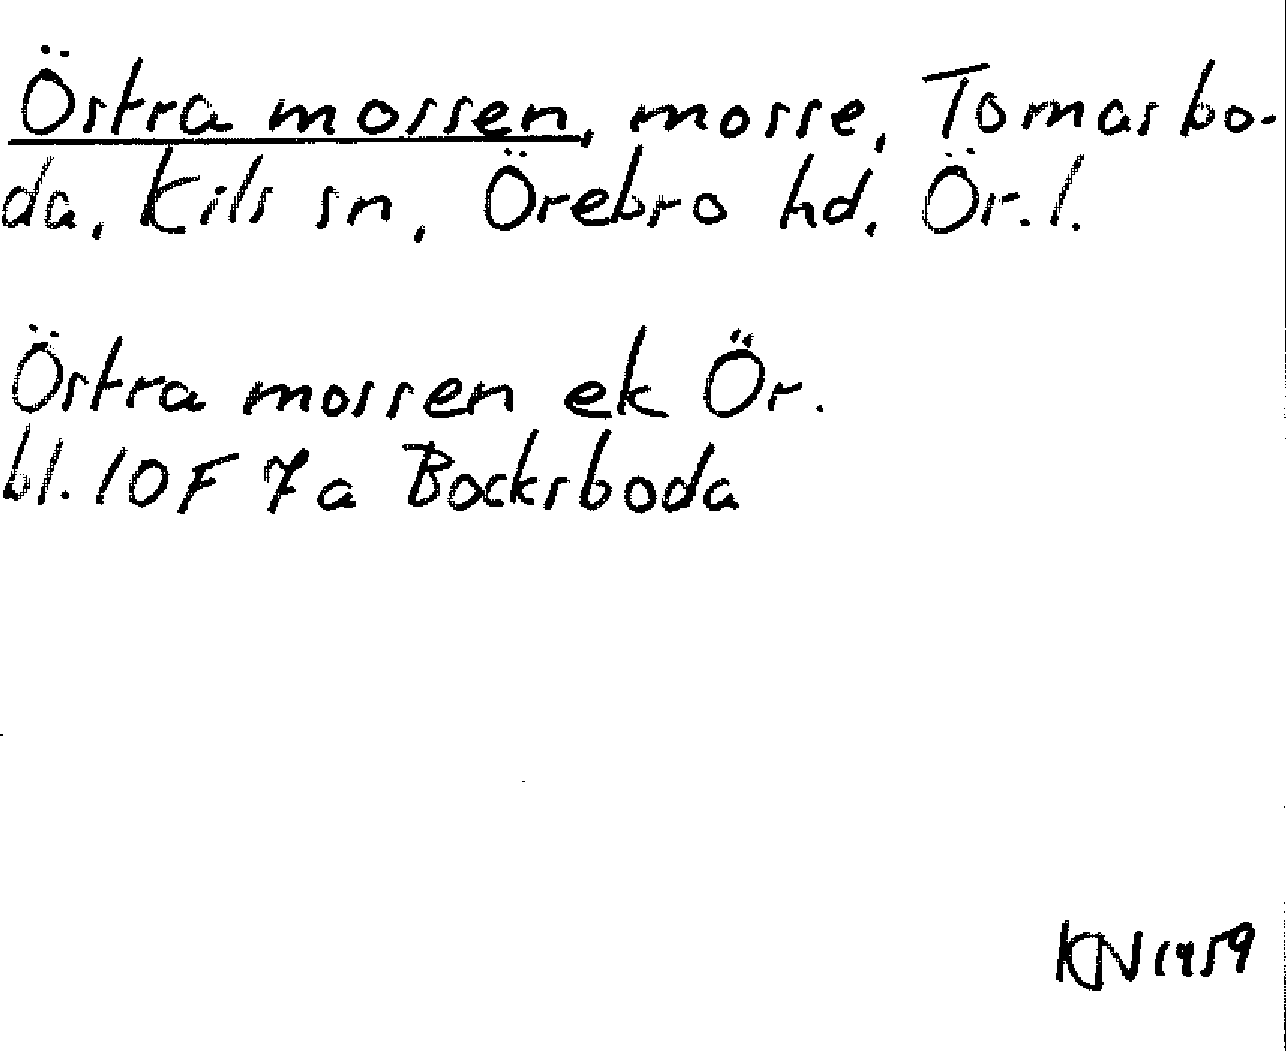 Östra mossen, mosse, Tomasbo-
da, Kils sn, Örebro hd, Ör. l.
Östra mossen ek Ör.
bl. 10F 7a Bocksboda
KN 1959